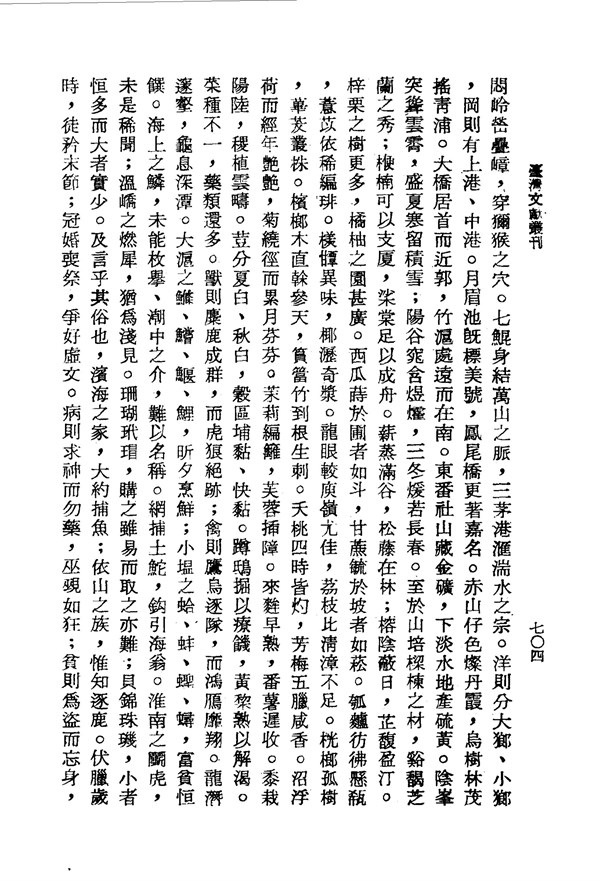 臺灣文獻叢刊
七〇四
悶岭嵤疊嶂，穿獼猴之穴。七鯤身結萬山之脈，三茅港滙湍水之宗。洋則分大鄉、小鄉
，岡則有上港、中港。月眉池旣標美號，鳳尾橋更著嘉名。赤山仔色燦丹霞，烏樹林茂
搖靑浦。大橋居首而近郭，竹滬處遠而在南。東番社山藏金礦，下淡水地產硫黃。陰峯
突聳雲霄，盛夏寒留積雪；陽谷窕含煜爚，三冬煖若長春。至於山培樑棟之材，谿靄芝
蘭之秀；楩楠可以支厦，柒棠足以成舟。薪蒸滿谷，松藤在林；榕陰蔽日，芷馥盈汀。
梓栗之樹更多，橘柚之園甚廣。西瓜蒔於圃者如斗，甘蔗毓於坡者如菘。瓠蠦彷彿懸瓻
，薏苡依稀編琲。檨憚異味，椰瀝奇漿。龍眼較庾嶺尤佳，荔枝比淸漳不足。桄榔孤樹
，蓽茇叢株。檳榔木直榦參天，篔簹竹到根生刺。夭桃四時皆灼，芳梅五臘咸香。沼浮
荷而經年艷艷，菊繞徑而累月芬芬。茉莉編籬，芙蓉插障。來麰早熟，番薯遲收。黍栽
陽陸，稷植雲疇。荳分夏白、秋白，穀區埔黏、快黏。蹲鴟掘以療饑，黃棃熟以解渴。
菜種不一，藥類還多。獸則麋鹿成群，而虎狼絕跡；禽則鷹烏逐隊，而鴻鴈靡翔。龍潛
邃壑，龜息深潭。大滬之鰷、鰽、鰋、鯉，昕夕烹鮮；小塭之蛤、蚌、蟶、蠣，富貧恒
饌。海上之鱗，未能枚擧、潮中之介，難以名稱。網捕土鮀，鈎引海翁。淮南之鬭虎，
未是稀聞；溫嶠之燃犀，猶爲淺見。珊瑚玳瑁，購之雖易而取之亦難；貝錦珠璣，小者
恒多而大者實少。及言乎其俗也，濱海之家，大約捕魚；依山之族，惟知逐鹿。伏臘歲
時，徒矜末節；冠婚喪祭，爭好虛文。病則求神而勿藥，巫覡如狂；貧則爲盜而忘身，